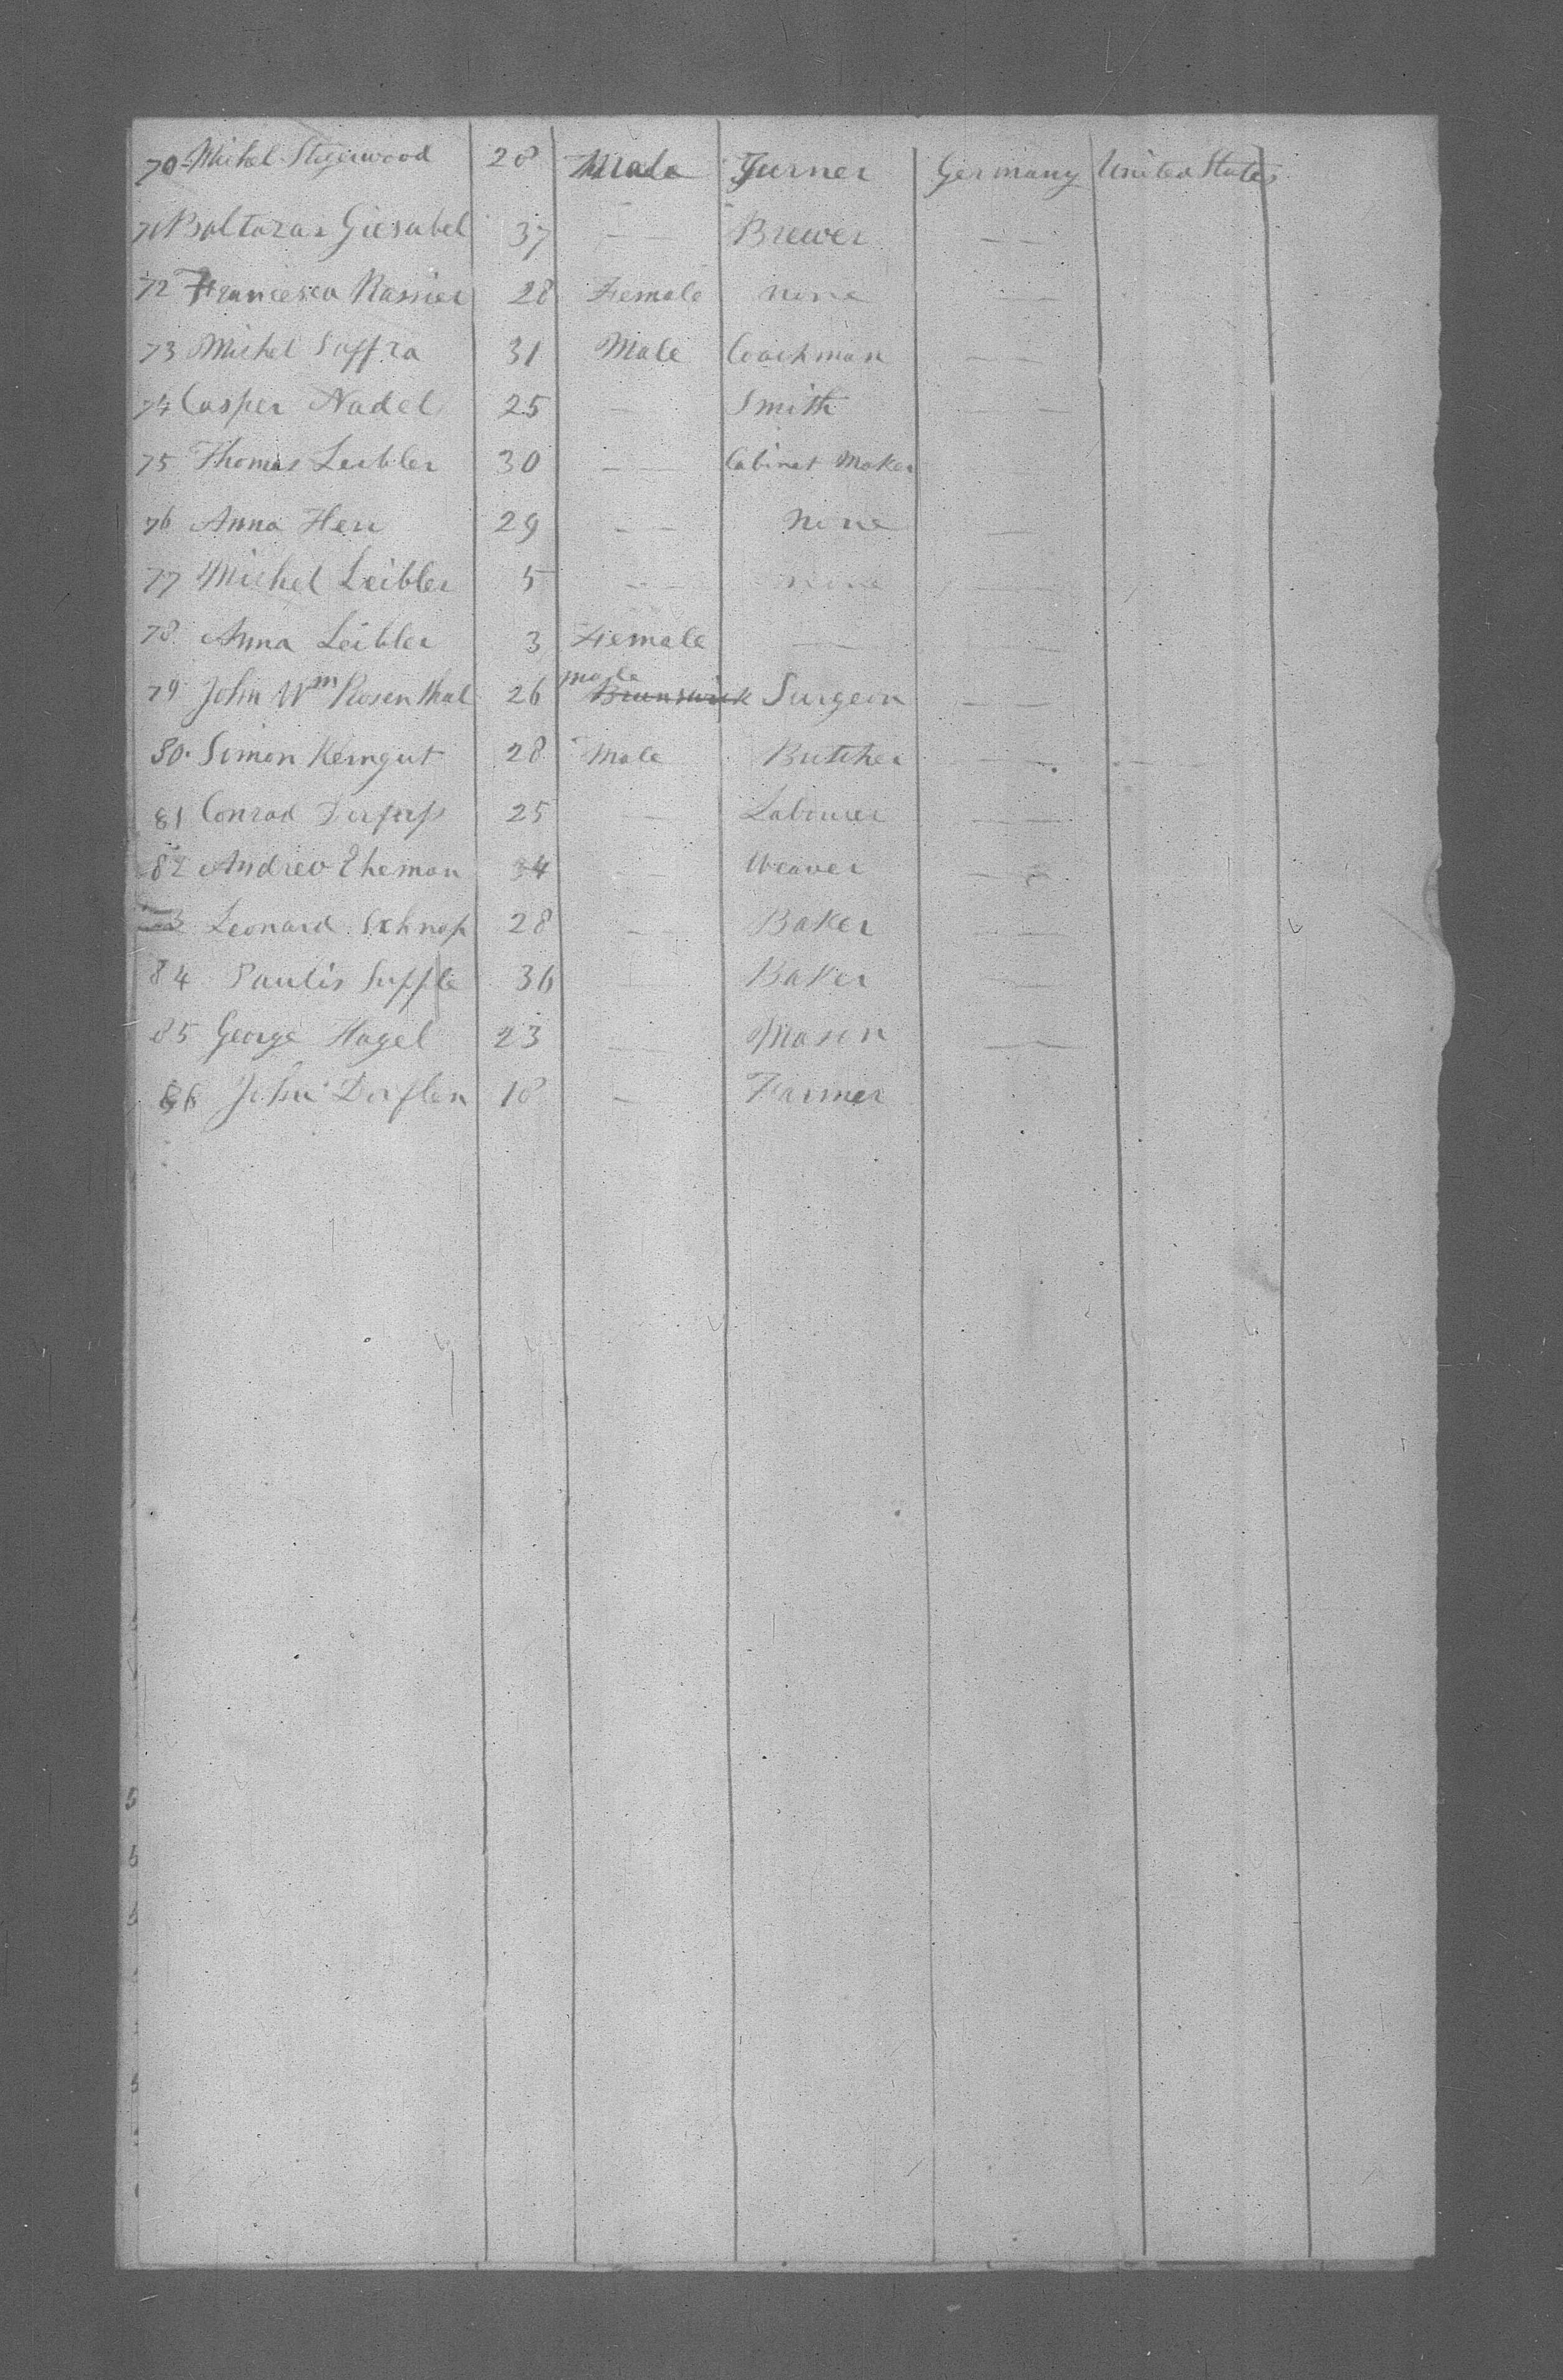 70 Michel Stigerwood 28 Male Turner Germany United States
71 Baltazar Giesabel 37 — — Brewer — —
72 Francesca Rassier 28 Female none — —
73 Michel Saffra 31 Male Coachman — —
74 Casper Nadel 25 — Smith — —
75 Thomas Leibler 30 — — Cabinet Maker
76 Anna Herr 29 — — None —
77 Michel Leibler 5 — — none —
78 Anna Leibler 3 Female — —
79 John Wm Rosenthal 26 male Brunswick Surgeon — —
80 Simon Kerngut 28 Male Butcher — — —
81 Conrad 25 — Labourer — —
82 Andrew Eheman 34 — — Weaver — —
83 Leonard Schnap 28 — Baker — —
84 Paulis Suffle 36 — Baker —
85 George Hagel 23 — — Mason — —
86 John Derflen 18 — Farmer